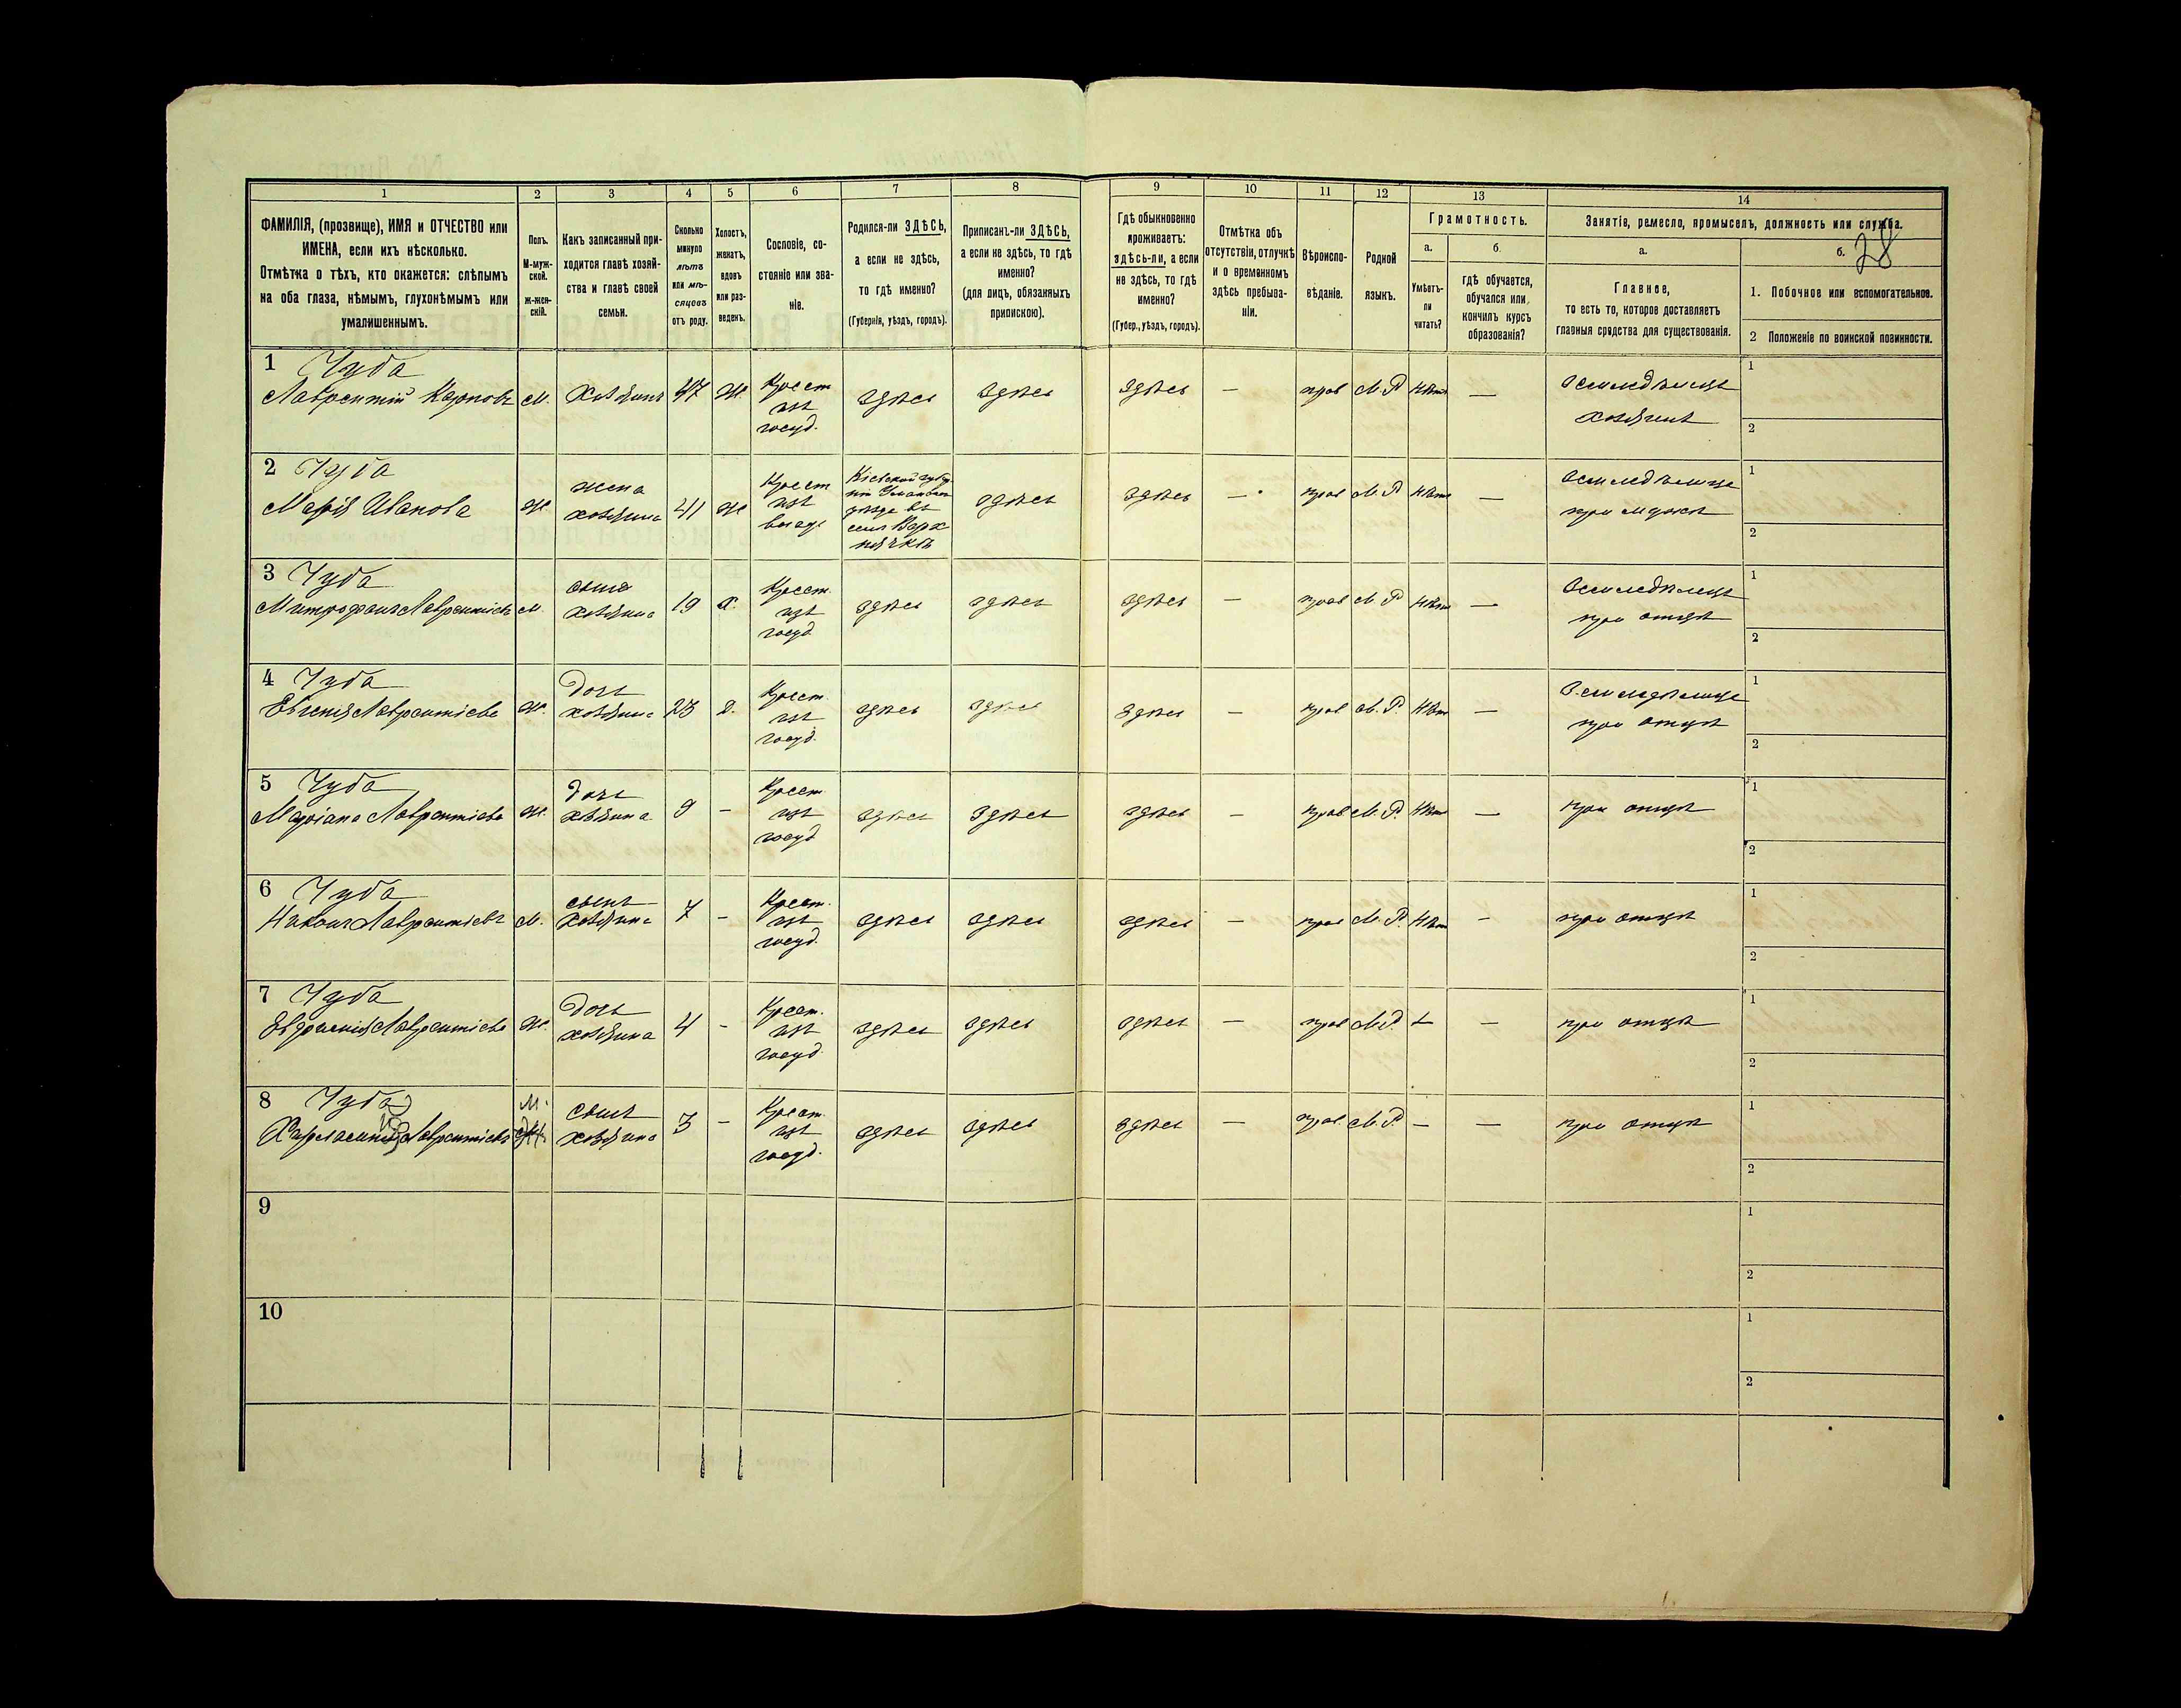 1 2 3 4 5 6 7 8 9 10 11 12 13 14
ФАМИЛІЯ, (прозвище), ИМЯ и ОТЧЕСТВО или
ИМЕНА, если ихъ нѣсколько.
Отмѣтка о тѣхъ, кто окажется: слѣпымъ
на оба глаза, нѣмымъ, глухонѣмымъ или
умалишеннымъ.
Полъ.
М-муж-
ской.
ж-жен-
скій.
Какъ записанный при-
ходится главѣ хозяй-
ства и главѣ своей
семьи.
Сколько
минуло
лѣтъ
или мѣ-
сяцевъ
отъ роду.
Холостъ,
женатъ,
вдовъ
или раз-
веденъ.
Сословіе, со-
стояніе или зва-
ніе.
Родился-ли ЗДѢСЬ,
а если не здѣсь,
то гдѣ именно?
(Губернія, уѣздъ, городъ).
Приписанъ-ли ЗДѢСЬ,
а если не здѣсь, то гдѣ
именно?
(для лицъ, обязанныхъ
припискою).
Гдѣ обыкновенно
проживаетъ:
здѣсь-ли, а если
не здѣсь, то гдѣ
именно?
(Губер., уѣздъ, городъ).
Отмѣтка объ
отсутствіи, отлучкѣ
и о временномъ
здѣсь пребыва-
ніи.
Вѣроиспо-
вѣданіе.
Родной
языкъ.
Грамотность.
а.
Умѣетъ-
ли
читать?
б.
гдѣ обучается,
обучался или
кончилъ курсъ
образованія?
Занятія, ремесло, промыселъ, должность или служба.
а.
Главное,
то есть то, которое доставляетъ
главныя средства для существованія.
б.
28
1. Побочное или вспомогательное.
2 Положеніе по воинской повинности.
1 Чуба
Лаврентій Карповъ
М.
Хозяинъ
47
Ж.
Крест
изъ
госуд.
здѣсь
здѣсь
здѣсь
—
прав
М. Р
нѣт
—
Земледѣлецъ
хозяинъ
1
2
2 Чуба
Марія Иванова
Ж
жена
хозяина
41
Ж
Крест
изъ
здѣсь
здѣсь
—
прав
М. Р
нѣт
—
при мужѣ
1
2
3 Чуба
Митрофанъ Лаврентіевъ
М.
сынъ
хозяина
19
Х.
Крест.
изъ
госуд
здѣсь
здѣсь
здѣсь
—
прав
М. Р
нѣт
—
Земледѣлецъ
при отцѣ
1
2
4 Чуба
Евгенія Лаврентіева
Ж.
дочь
хозяина
23
Д.
Крест.
изъ
госуд.
здѣсь
здѣсь
здѣсь
—
прав
М. Р.
нѣт
—
при отцѣ
1
2
5 Чуба
Маріана Лаврентіева
Ж.
дочь
хозяина
9
—
Крест
изъ
госуд
здѣсь
здѣсь
здѣсь
—
прав
М. Р.
нѣт
—
при отцѣ
1
2
6 Чуба
Никонъ Лаврентіевъ
М.
сынъ
хозяина
7
—
Крест.
изъ
госуд.
здѣсь
здѣсь
здѣсь
—
прав
М. Р.
нѣт
—
при отцѣ
1
2
7 Чуба
Лаврентіева
Ж.
дочь
хозяина
4
—
Крест.
изъ
госуд.
здѣсь
здѣсь
здѣсь
—
прав
М. Р.
—
при отцѣ
1
2
8 Чуба
Лаврентіевъ
М.
сынъ
хозяина
3
—
Крест.
изъ
госуд.
здѣсь
здѣсь
здѣсь
—
прав.
М. Р.
—
—
при отцѣ
1
2
9
1
2
10
1
2